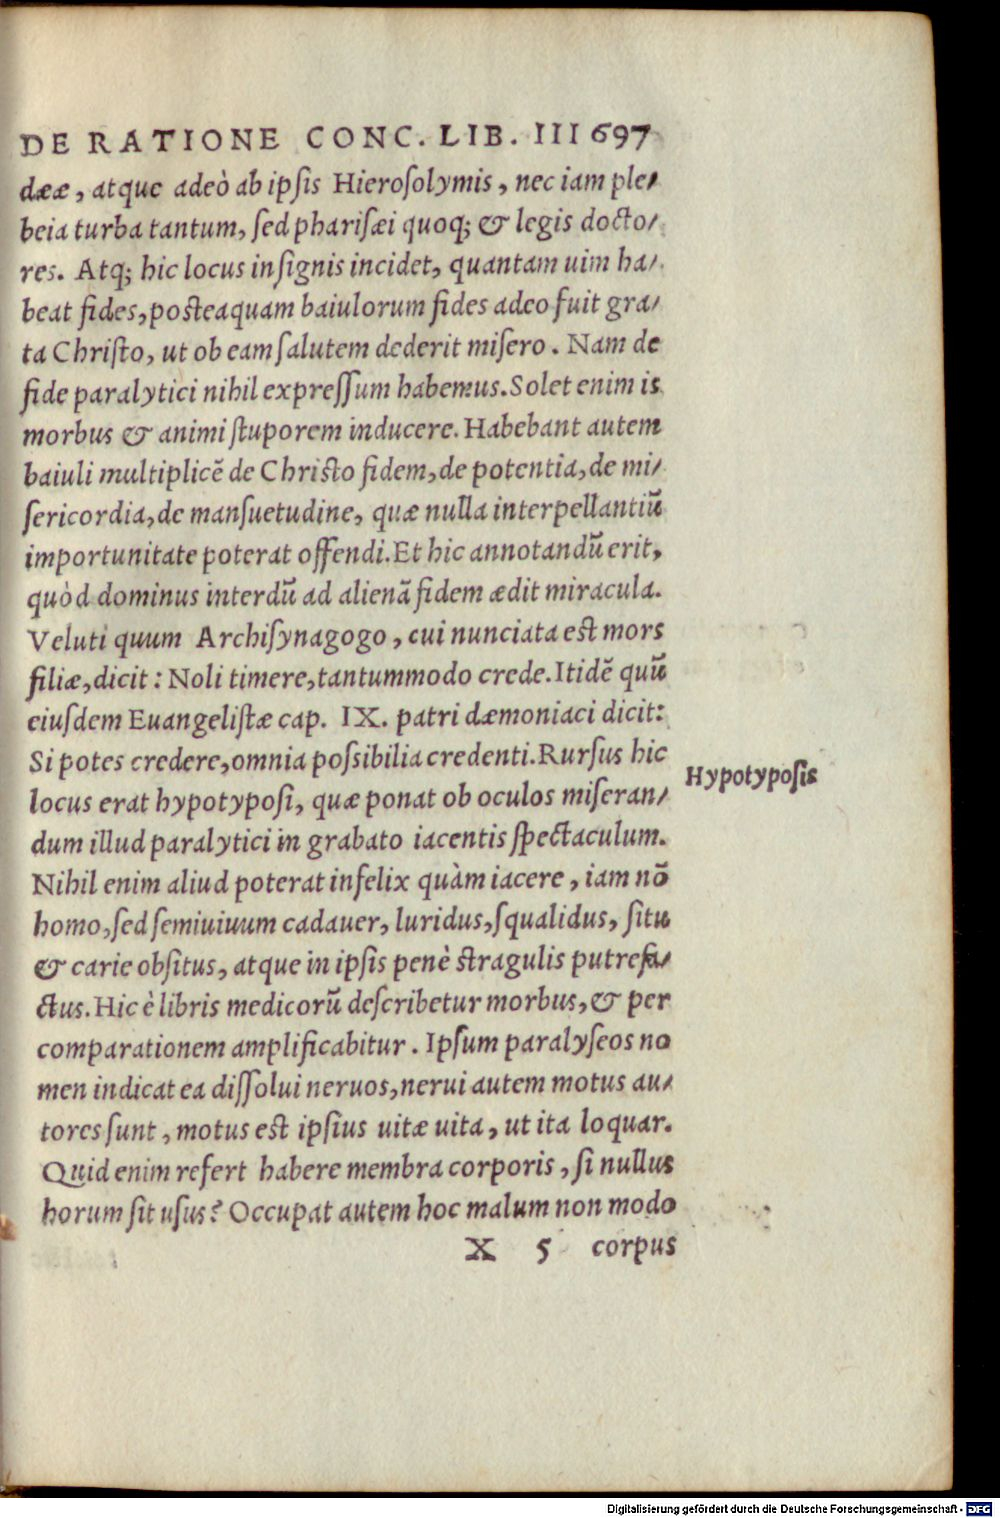 DE RATIONE CONC. LIB. III 697
dææ, atque adeò ab ipsis Hierosolymis, nec iam ple⸗
beia turba tantum, sed pharisæi quoq; & legis docto⸗
res. Atq; hic locus insignis incidet, quantam uim ha⸗
beat fides, posteaquam baiulorum fides adeo fuit gra⸗
ta Christo, ut ob eam salutem dederit misero. Nam de
fide paralytici nihil expressum habemus. Solet enim is
morbus & animi stuporem inducere. Habebant autem
baiuli multiplicē de Christo fidem, de potentia, de mi⸗
sericordia, de mansuetudine, quæ nulla interpellantiū
importunitate poterat offendi. Et hic annotandū erit,
quòd dominus interdū ad alienā fidem ædit miracula.
Veluti quum Archisynagogo, cui nunciata est mors
filiæ, dicit: Noli timere, tantummodo crede. Itidē quū
eiusdem Euangelistæ cap. IX. patri dæmoniaci dicit:
Si potes credere, omnia possibilia credenti. Rursus hic
Hypotyposis
locus erat hypotyposi, quæ ponat ob oculos miseran⸗
dum illud paralytici in grabato iacentis spectaculum.
Nihil enim aliud poterat infelix quàm iacere, iam nō
homo, sed semiuiuum cadauer, luridus, squalidus, situ
& carie obsitus, atque in ipsis penè stragulis putrefa⸗
ctus. Hic è libris medicorū describetur morbus, & per
comparationem amplificabitur. Ipsum paralyseos no
men indicat ea dissolui neruos, nerui autem motus au⸗
tores sunt, motus est ipsius uitæ uita, ut ita loquar.
Quid enim refert habere membra corporis, si nullus
horum sit usus? Occupat autem hoc malum non modo
X 5 corpus
Digitalisierung gefördert durch die Deutsche Forschungsgemeinschaft - DFG